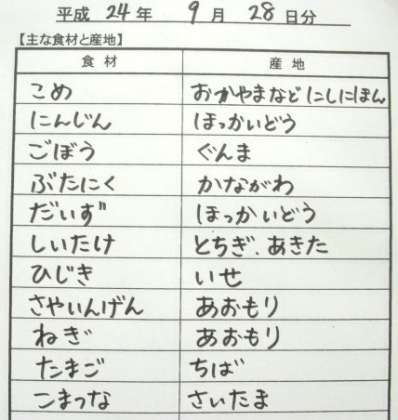 平成 24 年 9 月 28 日分
【主な食材と産地】
食材 産地
こめ おかやまなどにしにほん
にんじん ほっかいどう
ごぼう ぐんま
ぶたにく かながわ
だいず ほっかいどう
しいたけ とちぎ、あきた
ひじき いせ
さやいんげん あおもり
ねぎ あおもり
たまご ちば
こまつな さいたま